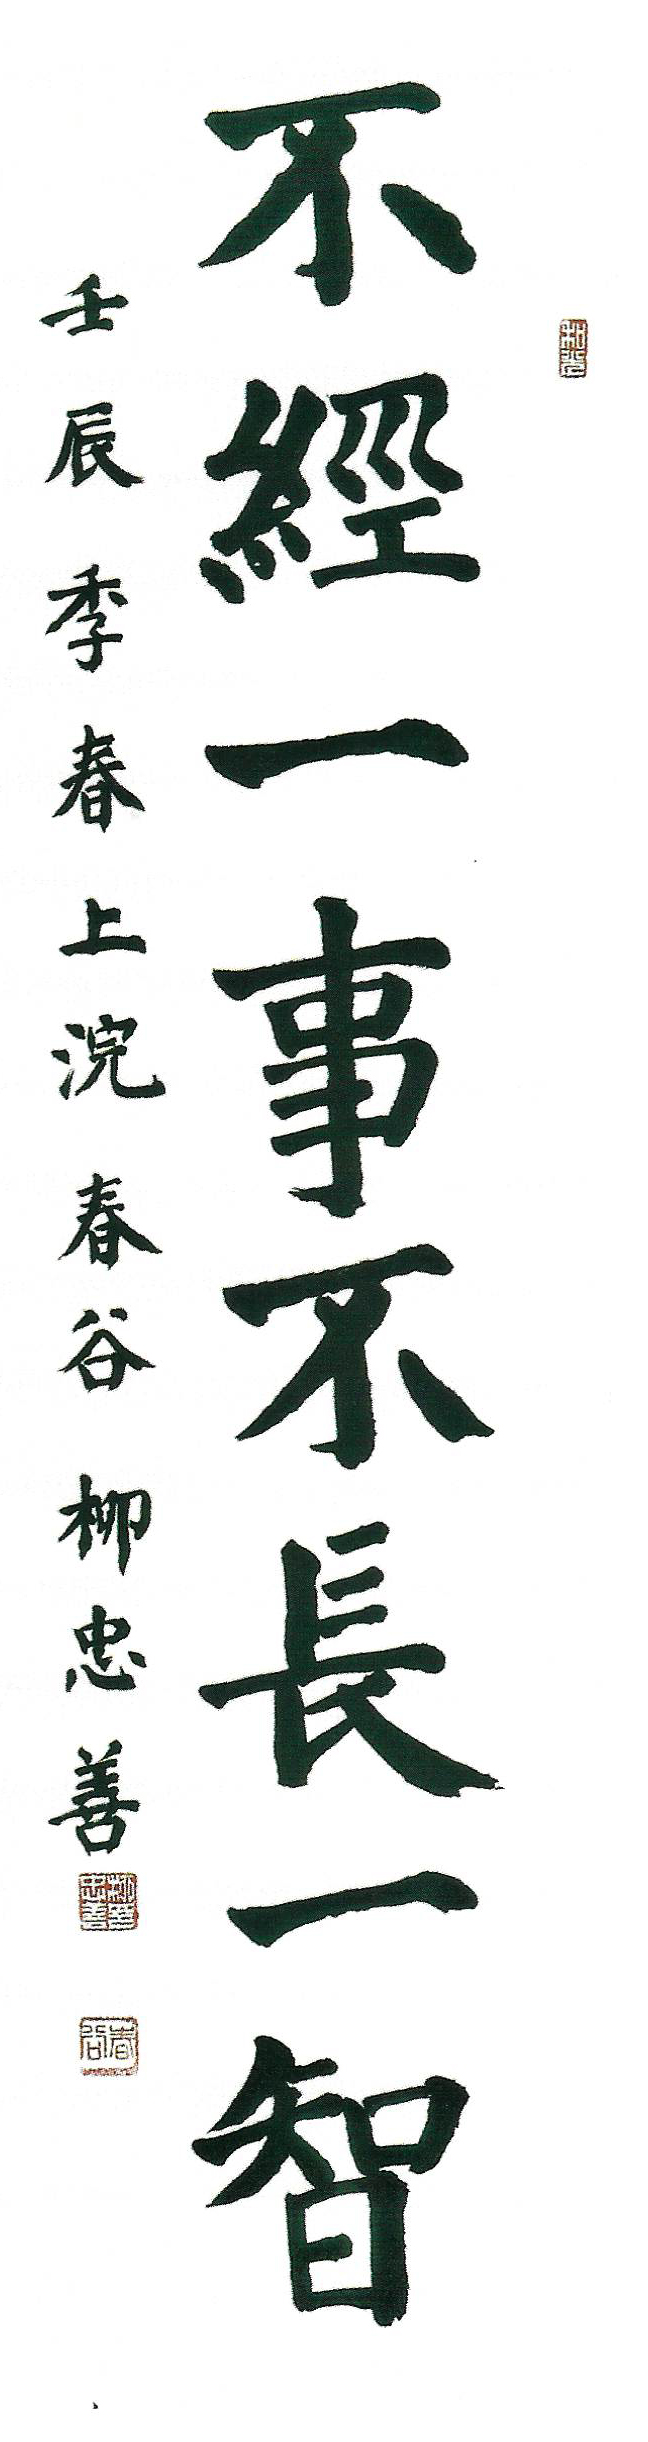 不經一事不長一智
壬辰季春上浣春谷柳忠善
春谷